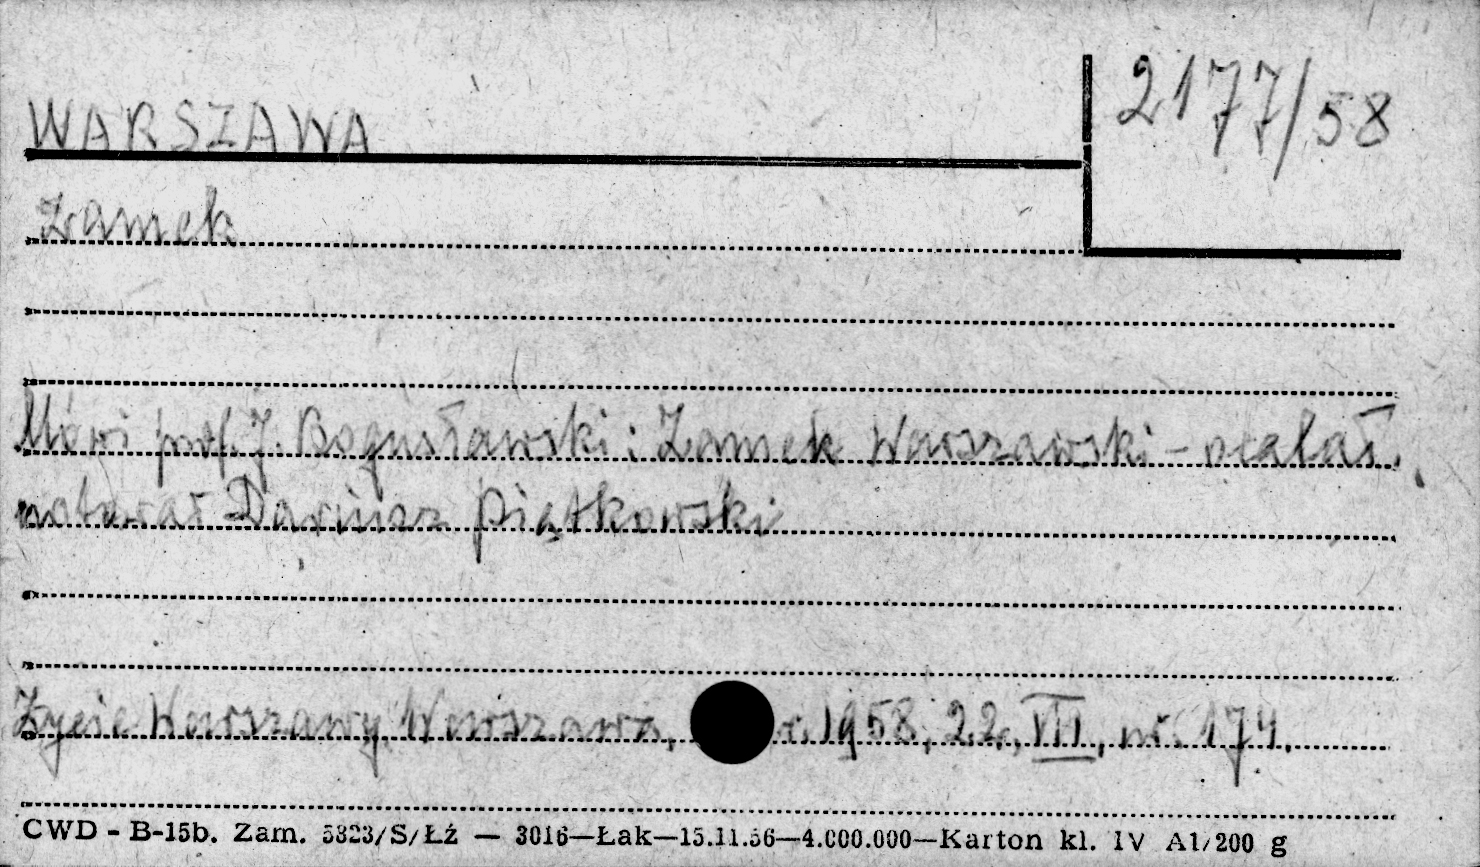 2177/58
WARSZAWA
Zamek
Mówi prof. J. Bogusławski: Zamek Warszawski - ocalał.
notował Dariusz Piątkowski
Życie Warszawy, Warszawa, r. 1958, 22, VII, nr. 174.
CWD - B-15b. Zam. 5323/S/Łź — 3016—Łak—15.11.56—4.000.000—Karton kl. IV A1/200 g